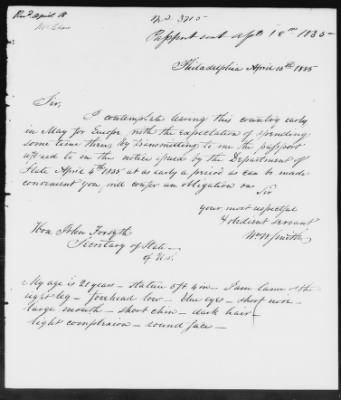 No. 3715
Passport sent Apl. 18th 1835
Philadelphia April 15th 1835
Sir,
I contemplate leaving this country early
in May for Europe, with the expectation of spending
some time there, by transmitting to me the passport
in the notice issued by the Department of
State April 4th 1835 at as early a period as can be made
convenient you will confer an obligation on Sir
your most respectful
& obedient servant
Wm W Smith
Hon John Forsyth
Secretary of State
of U.S.
My age is 21 years - stature 5 ft 4 in - I am lame
right leg - forehead low - blue eyes - short nose -
large mouth - short chin - dark hair -
light complexion - round face -